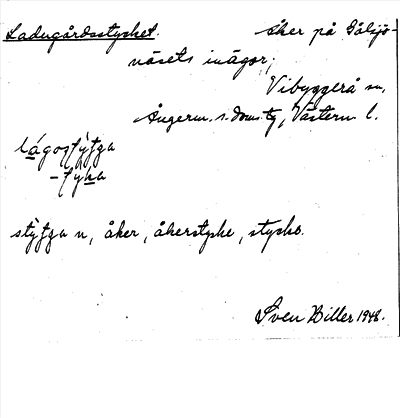 Ladugårdsstycket. Åker på Gålsjö-
näsets inägor,
Vibyggerå sn,
Ångerm. s. doms. tg, Västern. l.
stýtga n, åker, åkerstycke, stycke.
Sven Biller 1948.